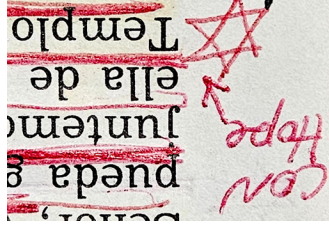 Señor,
pueda g
juntemo
ella de
Templo
CON
Hope